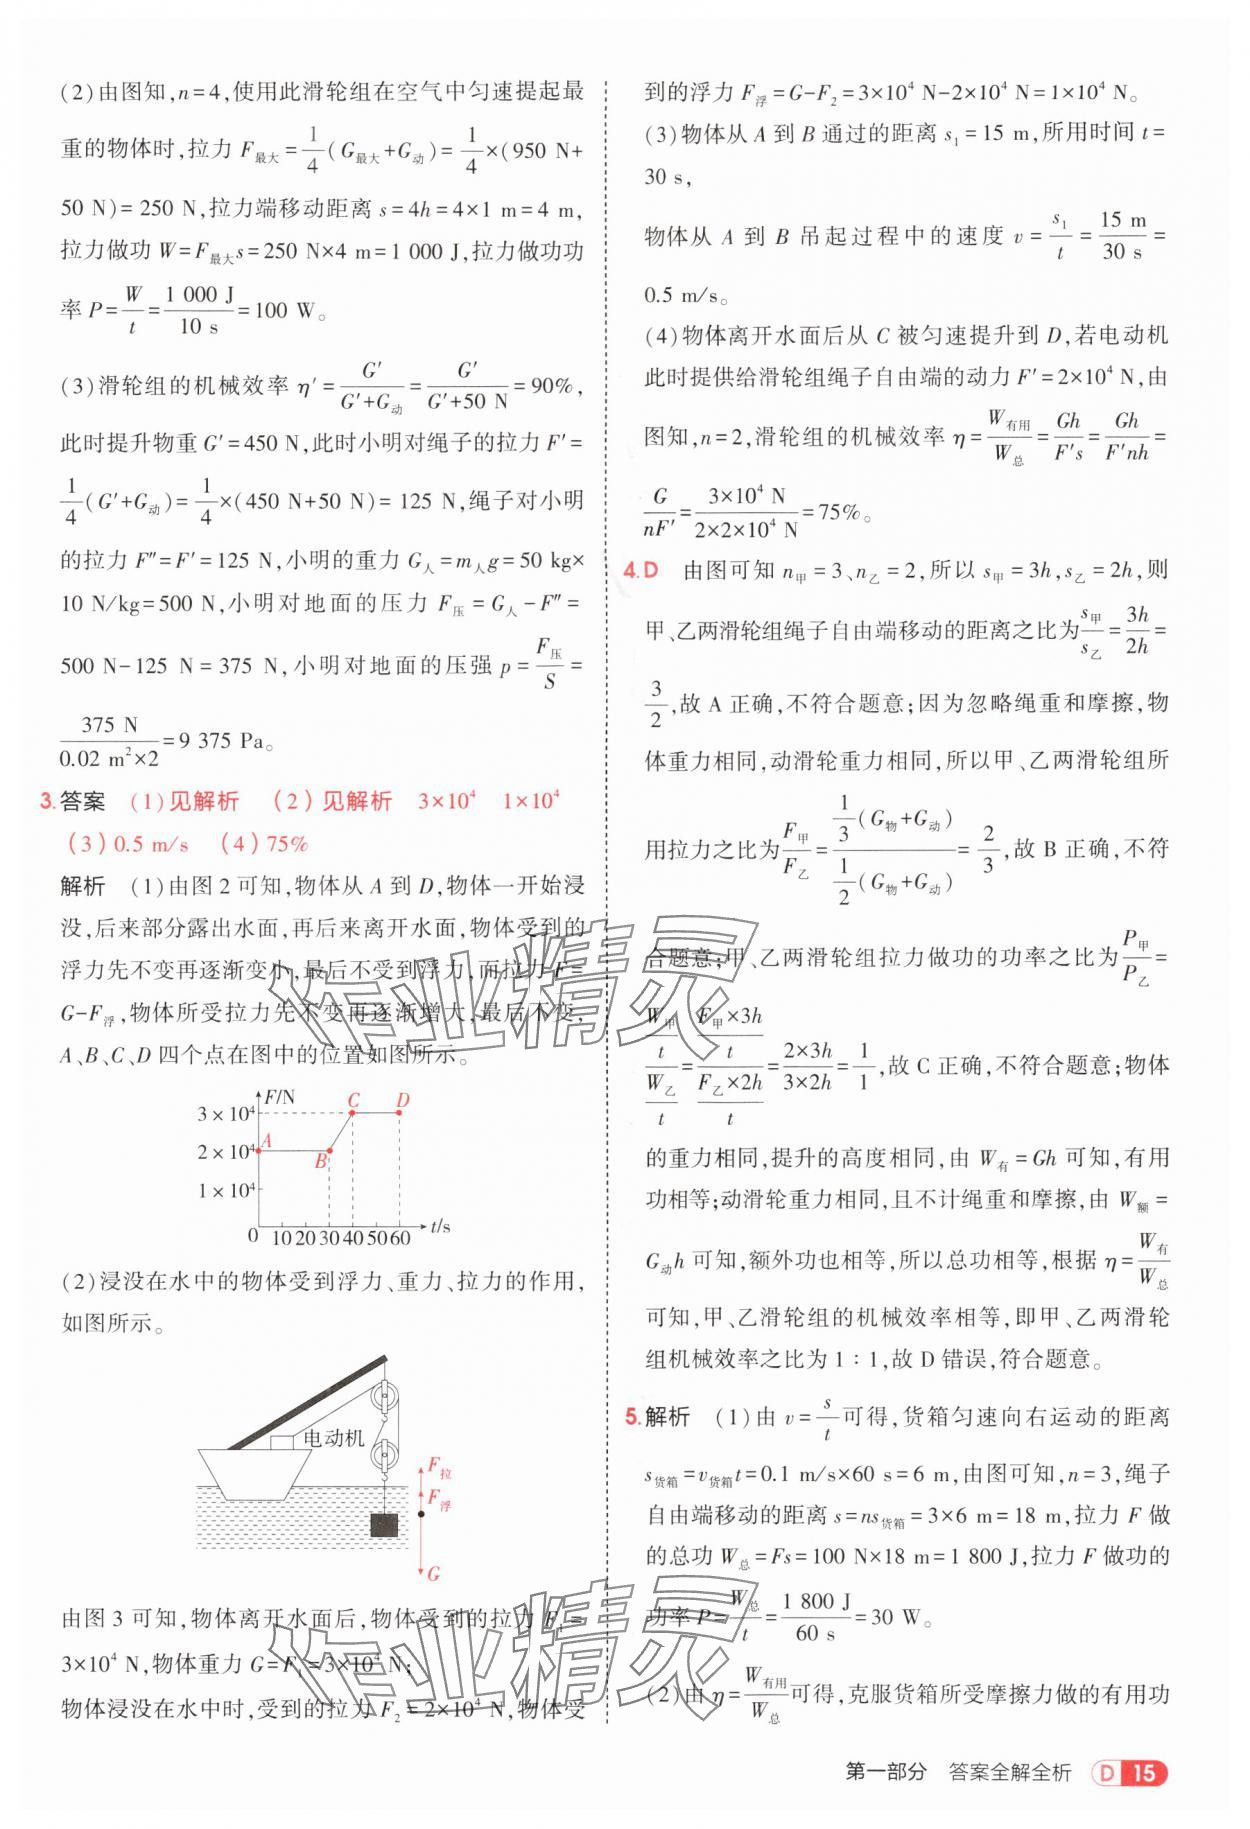 (2)由图知,n=4,使用此滑轮组在空气中匀速提起最
重的物体时,拉力 F最大=1/4(G最大+G动)=1/4×(950 N+
50 N)=250 N,拉力端移动距离 s=4h=4×1 m=4 m,
拉力做功 W=F最大s=250 N×4 m=1 000 J,拉力做功功
率 P=W/t=1 000 J/10 s=100 W。
(3)滑轮组的机械效率 η′=G′/(G′+G动)=G′/(G′+50 N)=90%,
此时提升物重 G′=450 N,此时小明对绳子的拉力 F′=
1/4(G′+G动)=1/4×(450 N+50 N)=125 N,绳子对小明
的拉力 F″=F′=125 N,小明的重力 G人=m人g=50 kg×
10 N/kg=500 N,小明对地面的压力 F压=G人-F″=
500 N-125 N=375 N,小明对地面的压强 p=F压/S=
375 N/(0.02 m²×2)=9 375 Pa。
3.答案 (1)见解析 (2)见解析 3×10⁴ 1×10⁴
(3)0.5 m/s (4)75%
解析 (1)由图2可知,物体从 A 到 D,物体一开始浸
没,后来部分露出水面,再后来离开水面,物体受到的
浮力先不变再逐渐变小,最后不受到浮力,而拉力 F=
G-F浮,物体所受拉力先不变再逐渐增大,最后不变,
A、B、C、D 四个点在图中的位置如图所示。
F/N
C D
3×10⁴
A
2×10⁴
B
1×10⁴
0 10 20 30 40 50 60 t/s
(2)浸没在水中的物体受到浮力、重力、拉力的作用,
如图所示。
电动机
F拉
F浮
G
由图3可知,物体离开水面后,物体受到的拉力 F₁=
3×10⁴ N,物体重力 G=F₁=3×10⁴ N;
物体浸没在水中时,受到的拉力 F₂=2×10⁴ N,物体受
到的浮力 F浮=G-F₂=3×10⁴ N-2×10⁴ N=1×10⁴ N。
(3)物体从 A 到 B 通过的距离 s₁=15 m,所用时间 t=
30 s,
物体从 A 到 B 吊起过程中的速度 v=s₁/t=15 m/30 s=
0.5 m/s。
(4)物体离开水面后从 C 被匀速提升到 D,若电动机
此时提供给滑轮组绳子自由端的动力 F′=2×10⁴ N,由
图知,n=2,滑轮组的机械效率 η=W有用/W总=Gh/F′s=Gh/F′nh=
G/nF′=3×10⁴ N/(2×2×10⁴ N)=75%。
4.D 由图可知 n甲=3、n乙=2,所以 s甲=3h,s乙=2h,则
甲、乙两滑轮组绳子自由端移动的距离之比为s甲/s乙=3h/2h=
3/2,故 A 正确,不符合题意;因为忽略绳重和摩擦,物
体重力相同,动滑轮重力相同,所以甲、乙两滑轮组所
用拉力之比为F甲/F乙=[1/3(G物+G动)]/[1/2(G物+G动)]=2/3,故 B 正确,不符
合题意;甲、乙两滑轮组拉力做功的功率之比为P甲/P乙=
(W甲/t)/(W乙/t)=(F甲×3h/t)/(F乙×2h/t)=2×3h/3×2h=1/1,故 C 正确,不符合题意;物体
的重力相同,提升的高度相同,由 W有=Gh 可知,有用
功相等;动滑轮重力相同,且不计绳重和摩擦,由 W额=
G动h 可知,额外功也相等,所以总功相等,根据 η=W有/W总
可知,甲、乙滑轮组的机械效率相等,即甲、乙两滑轮
组机械效率之比为1∶1,故 D 错误,符合题意。
5.解析 (1)由 v=s/t可得,货箱匀速向右运动的距离
s货箱=v货箱t=0.1 m/s×60 s=6 m,由图可知,n=3,绳子
自由端移动的距离 s=ns货箱=3×6 m=18 m,拉力 F 做
的总功 W总=Fs=100 N×18 m=1 800 J,拉力 F 做功的
功率 P=W总/t=1 800 J/60 s=30 W。
(2)由 η=W有用/W总可得,克服货箱所受摩擦力做的有用功
作业精灵
作业精灵
第一部分 答案全解全析 D 15